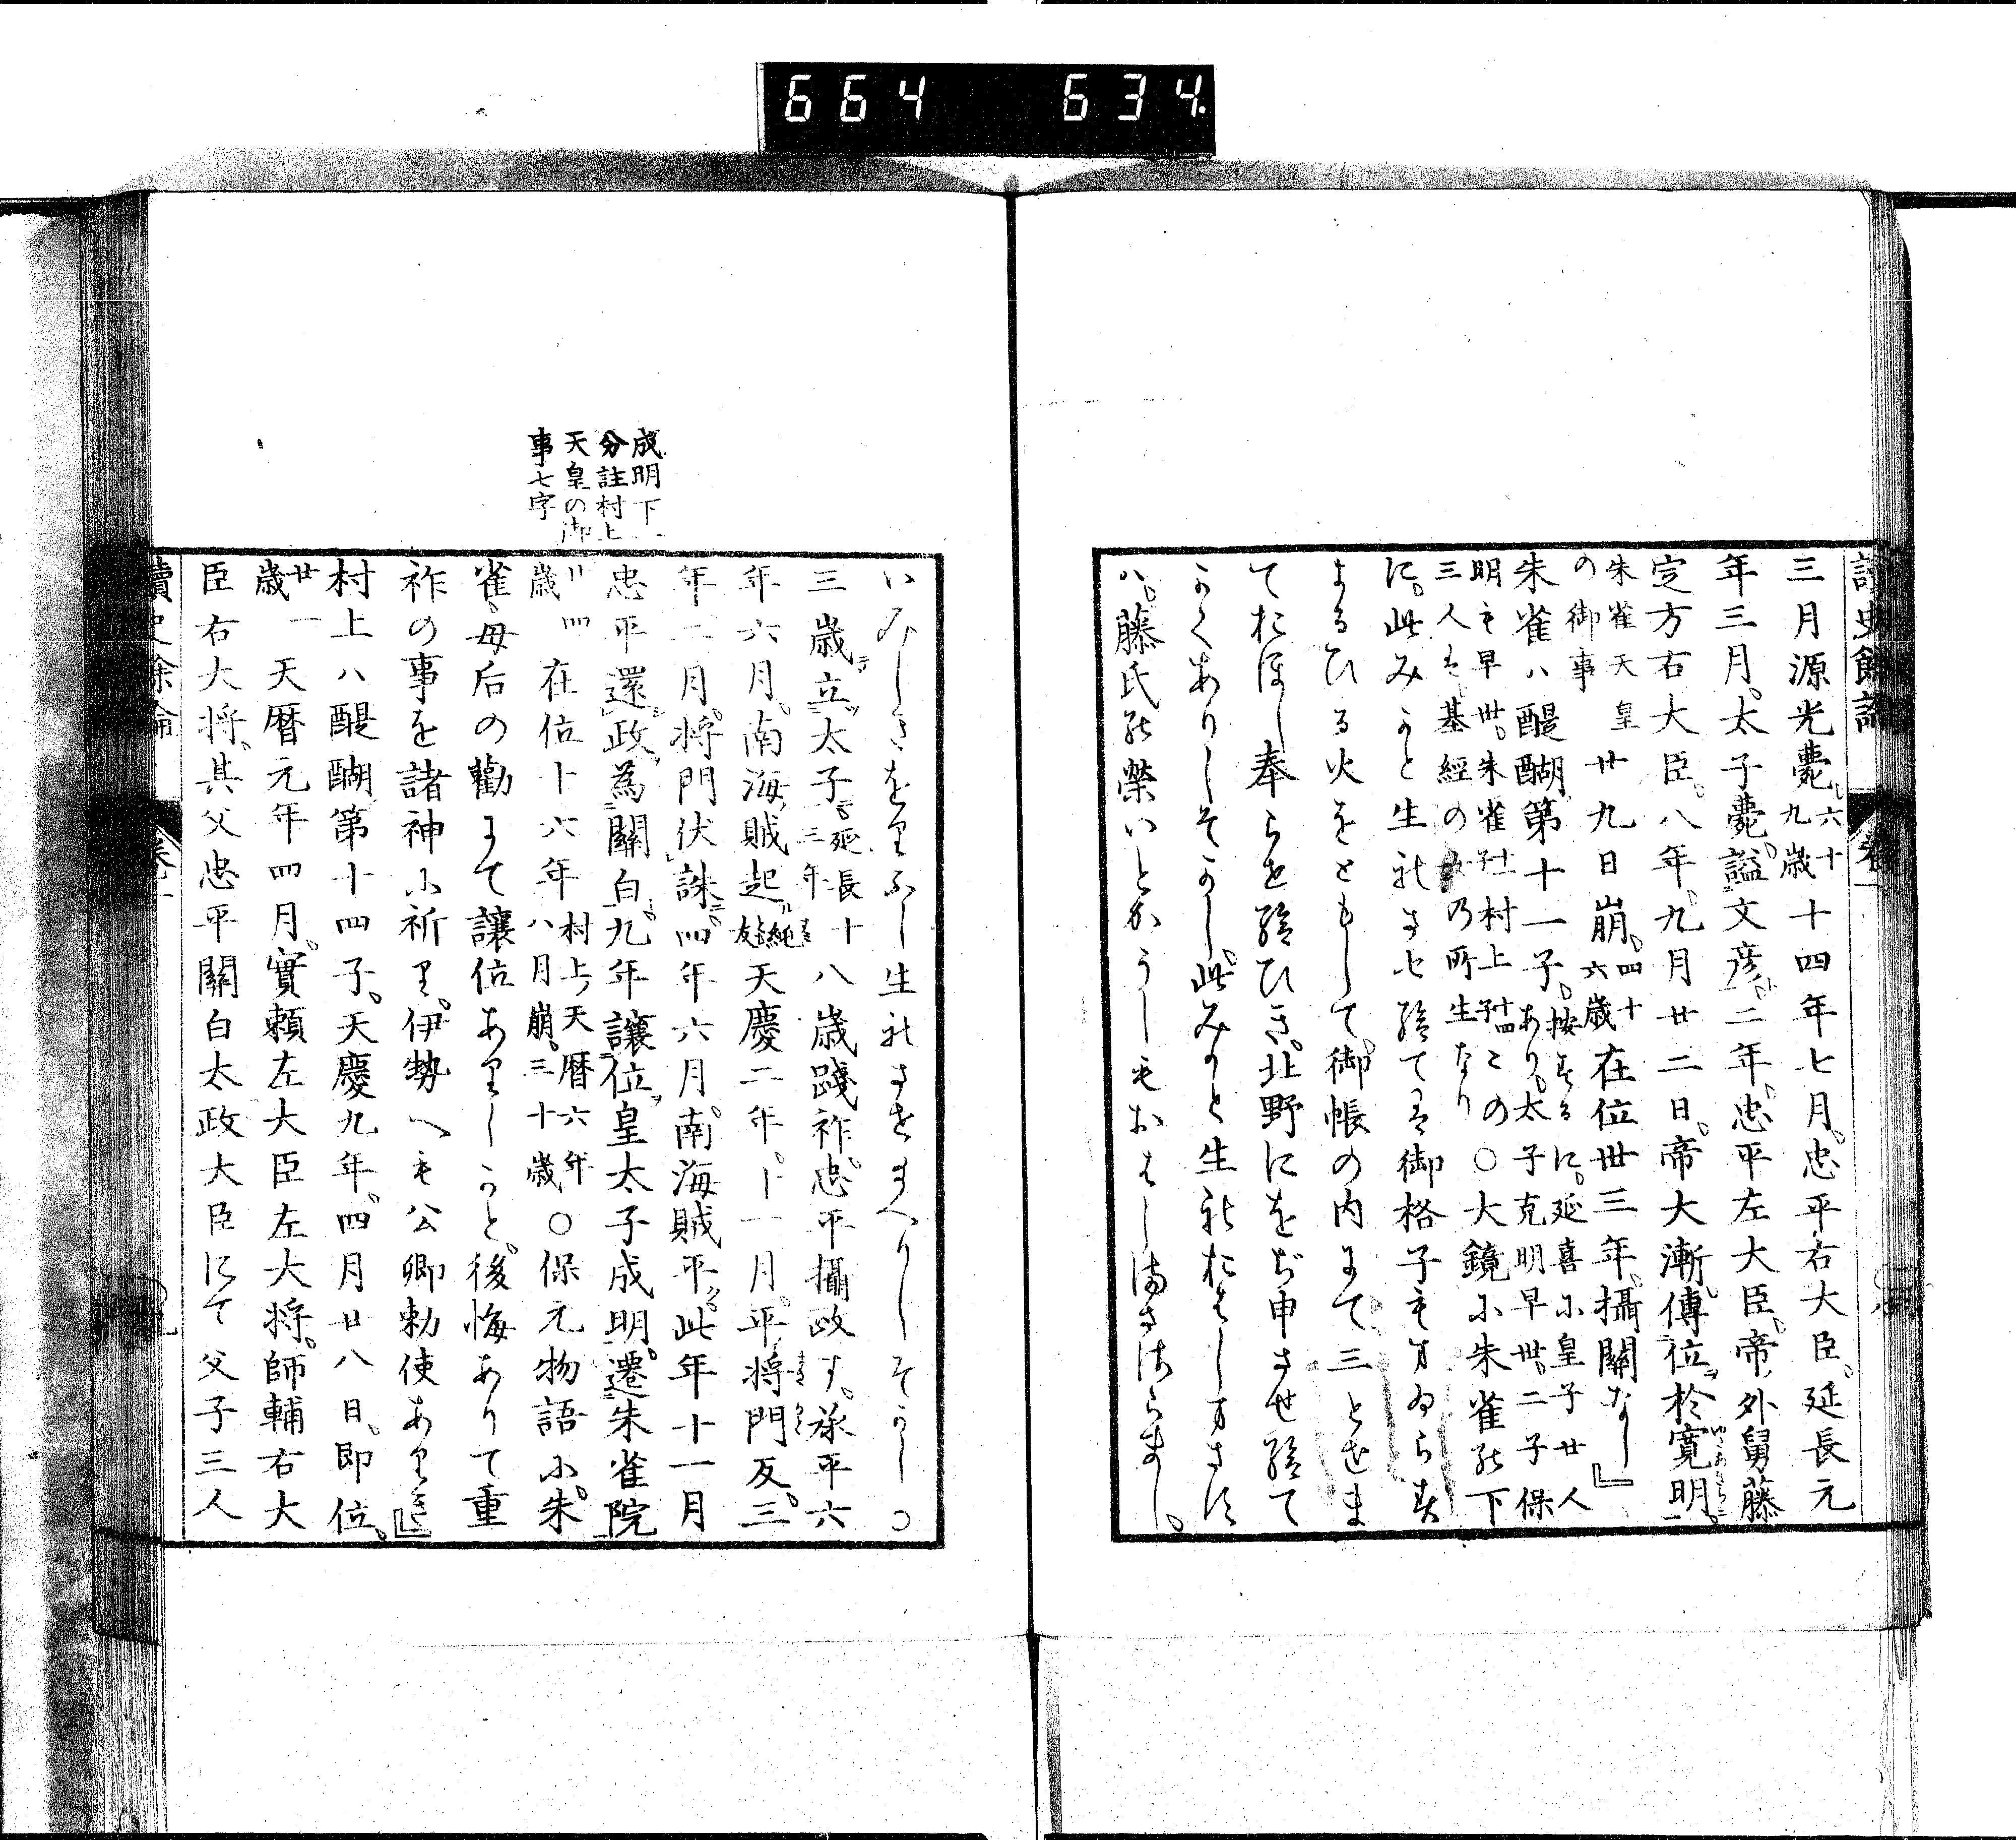 664 634
三月源光薨。六十九歳十四年七月。忠平右大臣。延長元
年三月。太子薨。謚文彦。二年。忠平左大臣。帝外舅藤
定方右大臣。八年。九月廿二日。帝大漸。傳位於寛明。
朱雀天皇の御事 廿九日崩。四十六歳 在位卅三年。攝關なし』
朱雀ハ醍醐第十一子。按するに。延喜小皇子廿人あり。太子克明早世。二子保
明も早世。朱雀十一子村上十四子この三人ハ基經の女乃所生なり ○大鏡小朱雀の下
に。此みかと生れさせ給てハ御格子もまゐらす
よるひる火をともして。御帳の内にて三とせま
ておほし奉らせ給ひき。北野にをぢ申させ給て
かくありしそかし。此みかと生れおはしまさす
ハ。藤氏の榮いとかうしもおはしまさゝらまし。
いみしきをりふし生れさせ給へりしそかし。○
三歳立太子。延長三年十八歳踐祚。忠平攝政す。承平六
年六月。南海賊起。純友天慶二年。十一月。平將門反。三
年二月。將門伏誅。四年六月。南海賊平。此年十一月
忠平還政。為關白。九年讓位皇太子成明。遷朱雀院
廿四歳 在位十六年 村上天暦六年八月崩。三十歳 ○保元物語小。朱
雀。母后の勸にて讓位ありしかと。後悔ありて重
祚の事を諸神小祈り。伊勢へも公卿勅使ありき』
村上ハ醍醐第十四子。天慶九年。四月廿八日。即位。
廿一歳 天暦元年四月。實頼左大臣左大将。師輔右大
臣右大将。其父忠平關白太政大臣にて父子三人
成明下
分註村上
天皇の御
事七字